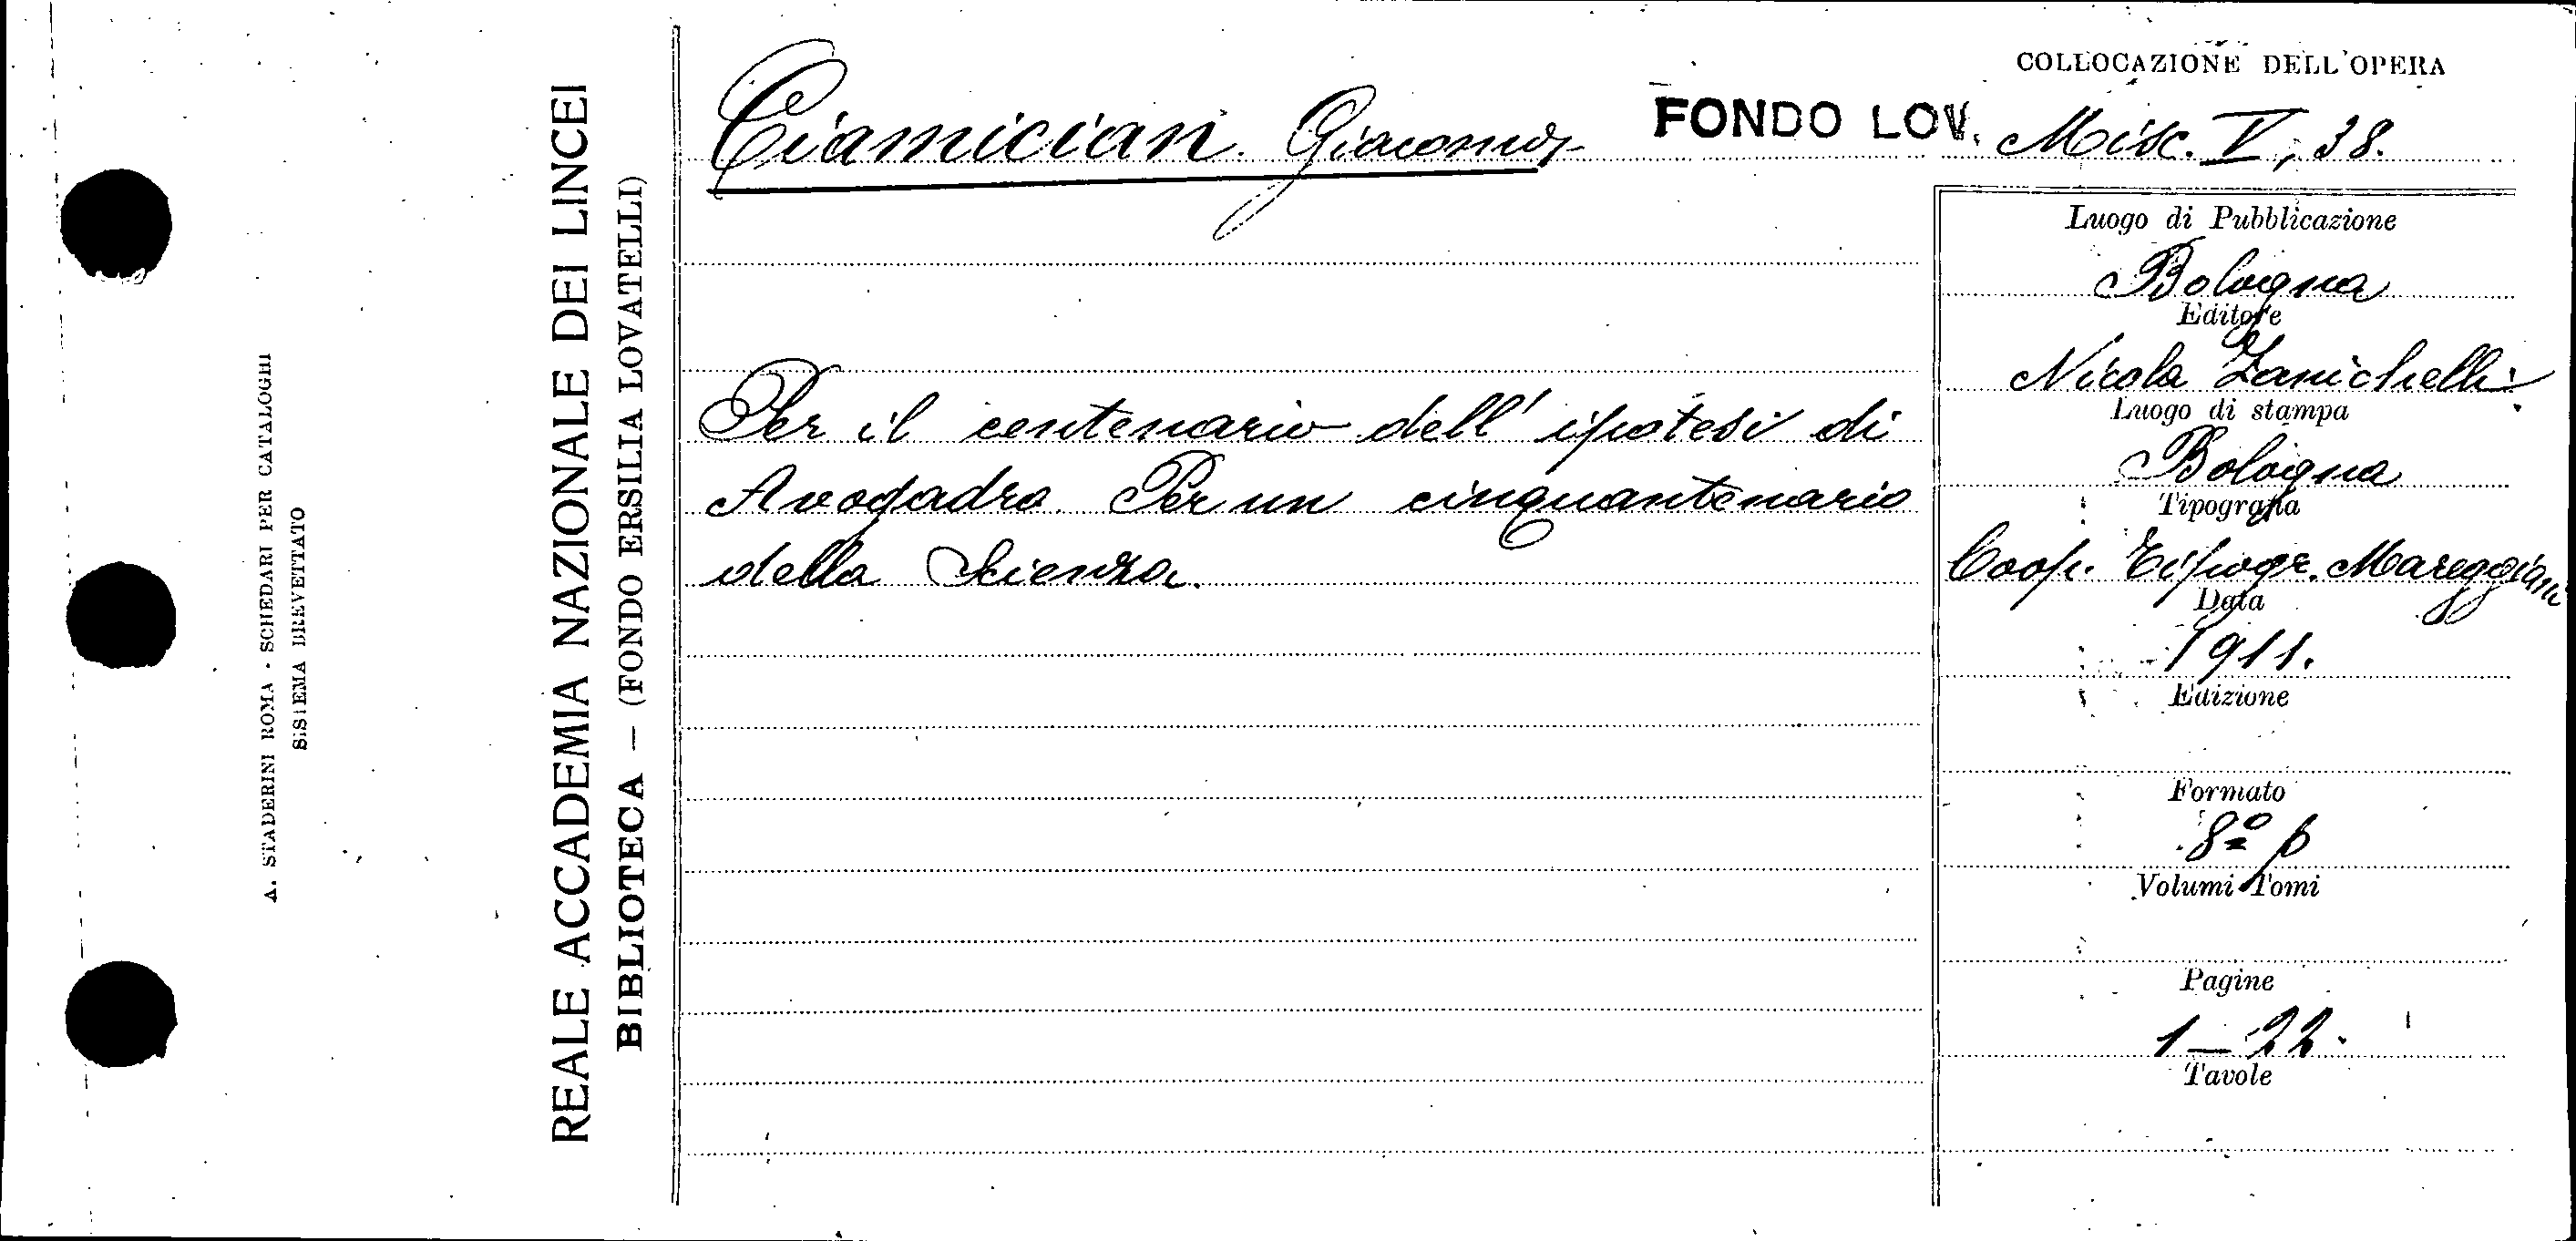 A. STADERINI ROMA - SCHEDARI PER CATALOGHI
SISTEMA BREVETTATO
REALE ACCADEMIA NAZIONALE DEI LINCEI
BIBLIOTECA — (FONDO ERSILIA LOVATELLI)
Ciamician Giacomo
FONDO LOV.
COLLOCAZIONE DELL'OPERA
Misc. V, 38.
Per il centenario dell' ipotesi di
Avogadro. Per un cinquantenario
della Scienza.
Luogo di Pubblicazione
Bologna
Editore
Nicola Zanichelli
Luogo di stampa
Bologna
Tipografia
Coop. Tipogr. Mareggiani
Data
1911.
Edizione
Formato
8º p
Volumi Tomi
Pagine
1-22.
Tavole